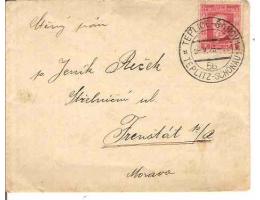 Ctěný pán
p Jeník Rešek
Střelniční ul.
Frenštát p/R
Morava
TEPLICE-ŠANOV
TEPLITZ-SCHÖNAU
5b